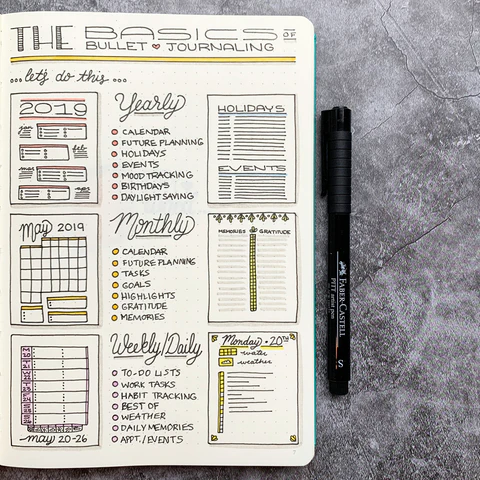 THE BASICS OF
BULLET ♥ JOURNALING
...let's do this...
2019
jan
feb
mar
apr
Yearly
CALENDAR
FUTURE PLANNING
HOLIDAYS
EVENTS
MOOD TRACKING
BIRTHDAYS
DAYLIGHT SAVING
HOLIDAYS
EVENTS
May 2019
Monthly
CALENDAR
FUTURE PLANNING
TASKS
GOALS
HIGHLIGHTS
GRATITUDE
MEMORIES
MEMORIES & GRATITUDE
may 20-26
Weekly/Daily
TO-DO LISTS
WORK TASKS
HABIT TRACKING
BEST OF
WEATHER
DAILY MEMORIES
APPT./EVENTS
Monday • 20TH
water
weather
FABER-CASTELL
PITT artist pen
S